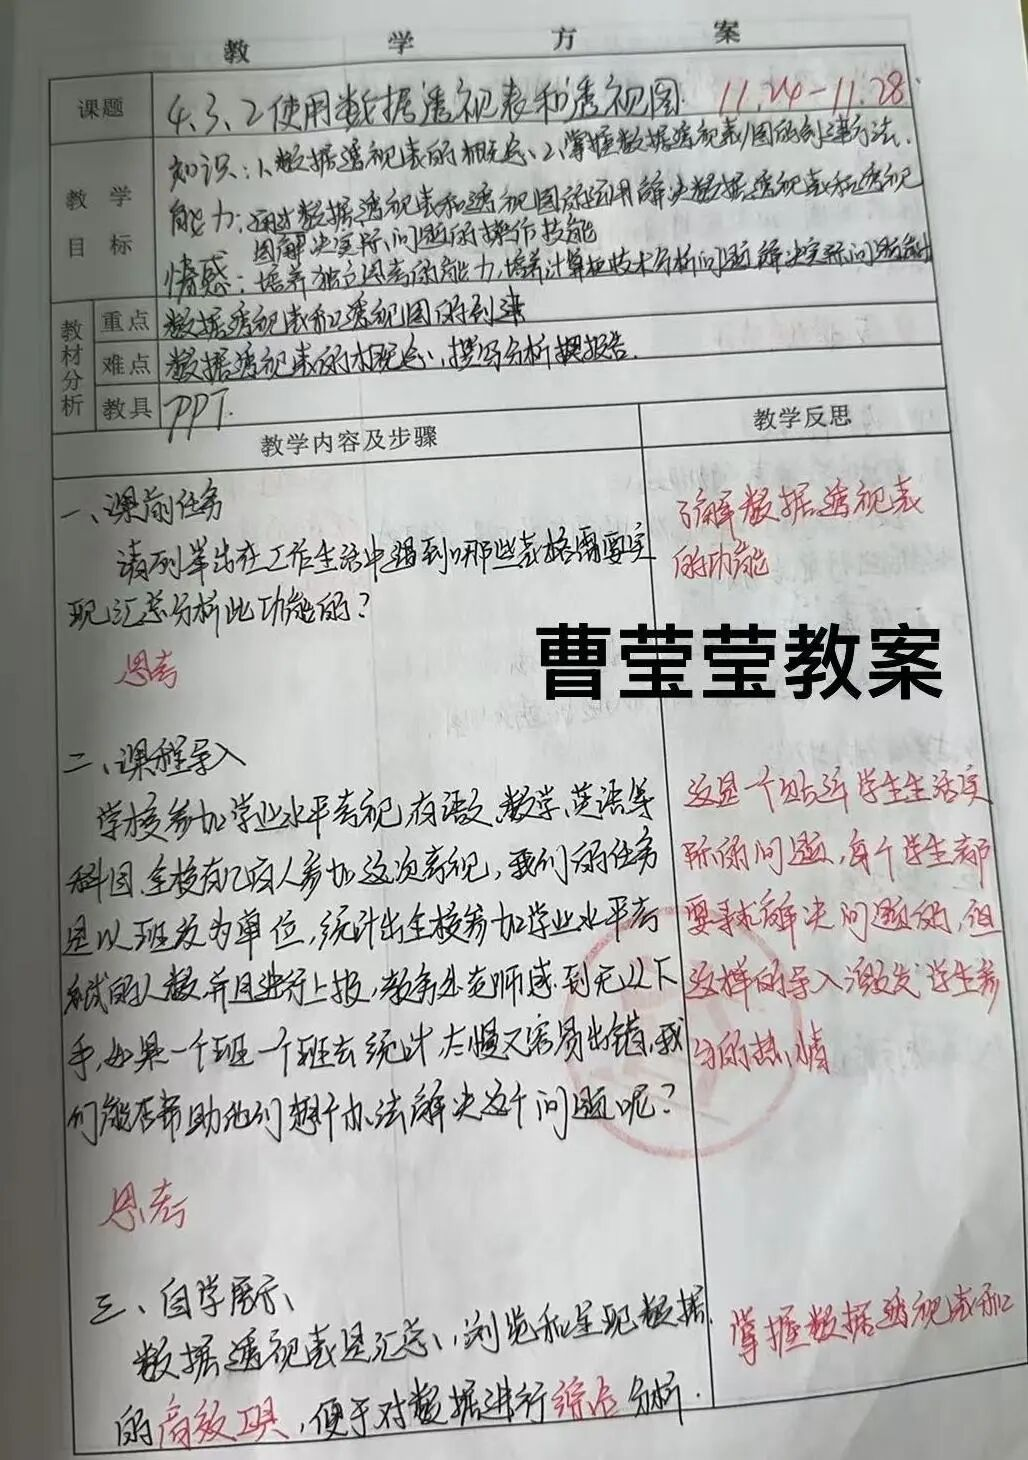 教 学 方 案
课题 4.3.2使用数据透视表和透视图 11.24-11.28
教学目标
知识:1、数据透视表的概念、2、掌握数据透视表/图的创建方法.
能力:通过数据透视表和透视图的运用解决数据透视表和透视
图解决实际问题的操作技能
情感:培养独立思考的能力,培养计算机技术分析问题解决实际问题
教材分析
重点 数据透视表和透视图的创建
难点 数据透视表的概念、撰写分析报告.
教具 PPT.
教学内容及步骤 教学反思
一、课前任务
请列举出在工作生活中遇到哪些表格需要实
现汇总分析此功能的?
思考
了解数据透视表
的功能
曹莹莹教案
二、课程导入
学校参加学业水平考试,有语文、数学、英语等
科目,全校有几百人参加这次考试,我们的任务
是以班级为单位,统计出全校参加学业水平考
试的人数,并且进行上报,教务处老师感到无从下
手,如果一个班一个班去统计,太慢又容易出错,我
们能否帮助他们想个办法解决这个问题呢?
思考
这是一个贴近学生生活实
际的问题,每个学生都
要寻求解决问题的,但
这样的导入激发学生参
与的热情
三、自学展示
数据透视表是汇总、浏览和呈现数据
的高效工具,便于对数据进行综合分析.
掌握数据透视表和